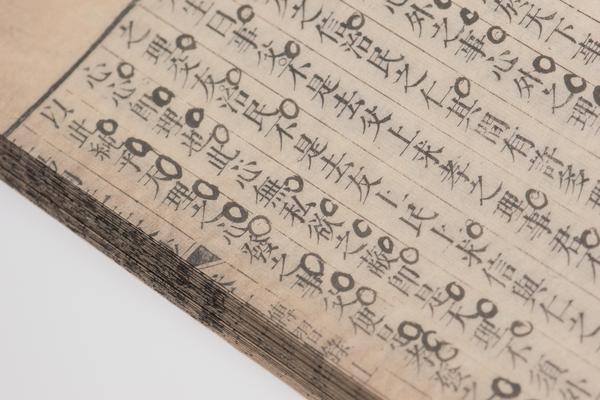 於天下事
心外之事心外之理
之信治民之仁其間有許多理
生曰事父不是去父上求孝之理事君不
之理交友治民不是去友上民上求信與仁之
心心即理也此心無私欲之蔽即是天理不須外
以此純乎天理之心發之事父便是孝發
傳習錄上